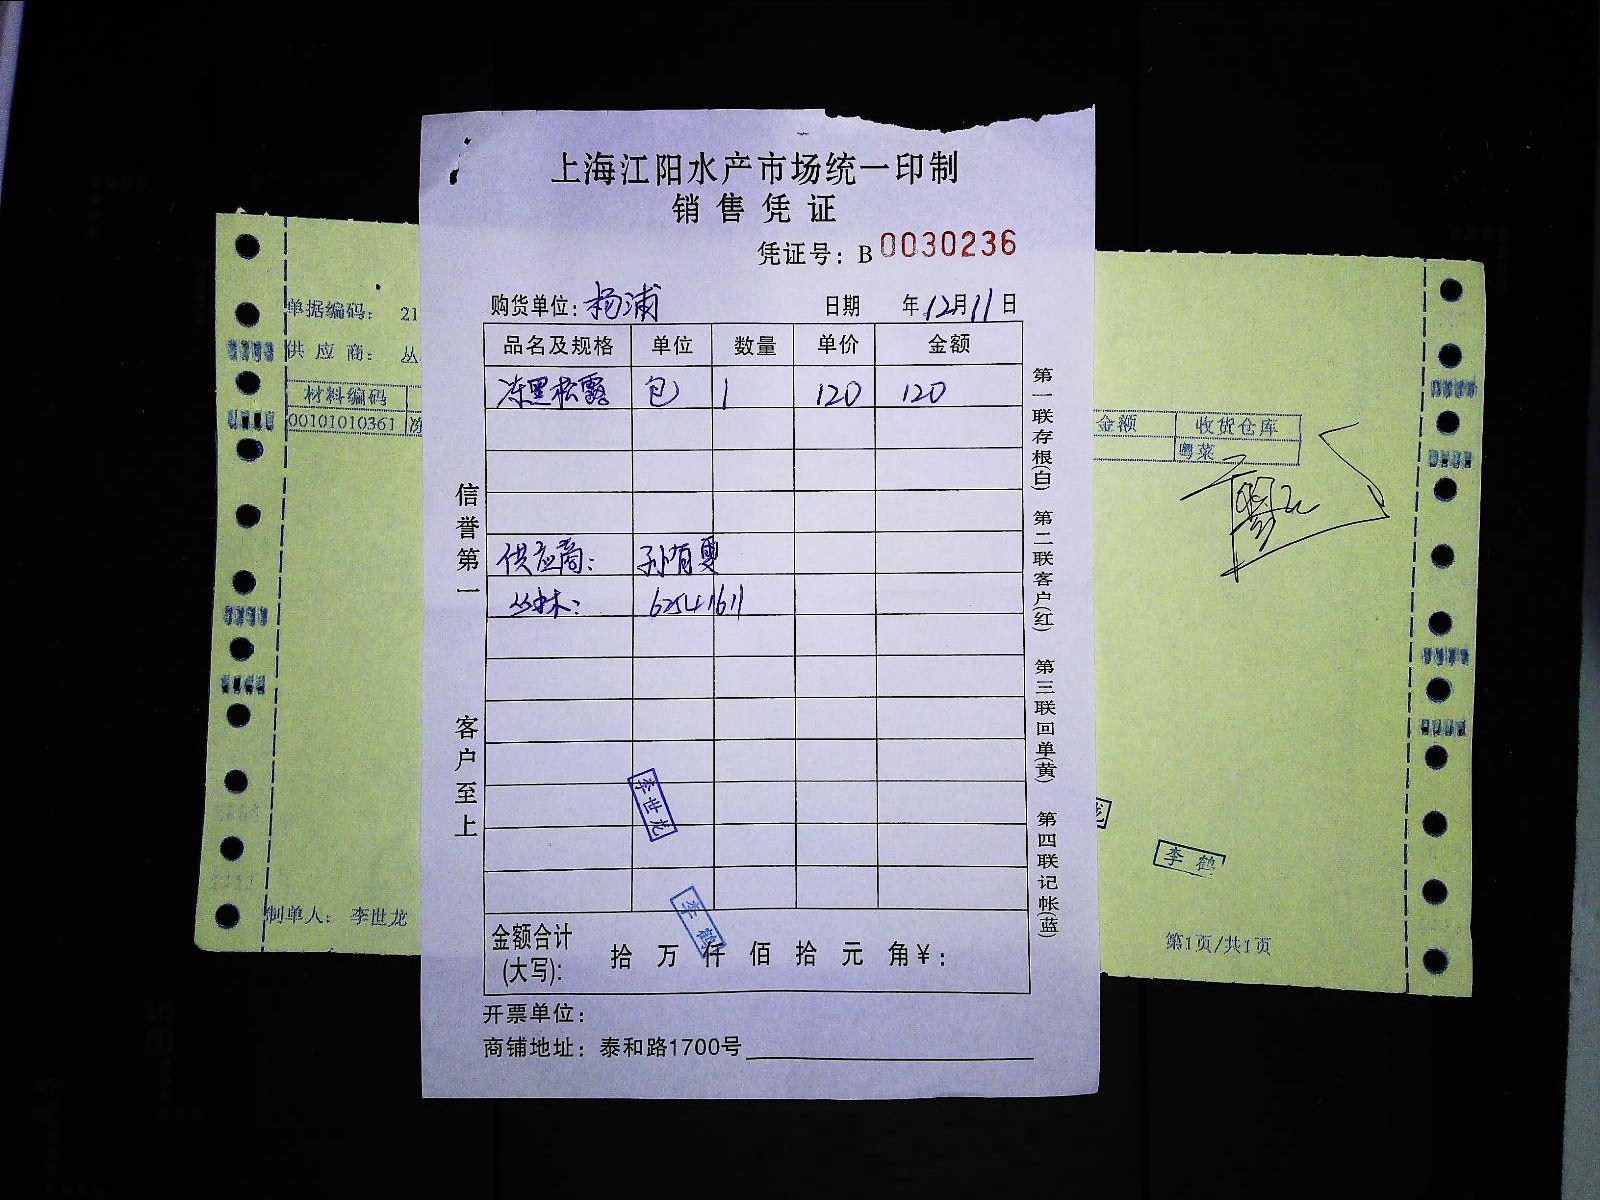 上海江阳水产市场统一印制
销售凭证
凭证号：B 0030236
购货单位：杨浦 日期 年12月11日
品名及规格 单位 数量 单价 金额
冻黑松露 包 1 120 120
供应商： 孙有
丛林： 62541611
信誉第一
客户至上
第一联存根(白) 第二联客户(红) 第三联回单(黄) 第四联记帐(蓝)
李世龙
李鹤
金额合计(大写)： 拾 万 仟 佰 拾 元 角 ¥：
开票单位：
商铺地址：泰和路1700号
单据编码： 21
供应商： 丛
材料编码
00101010361 冻
制单人： 李世龙
金额 收货仓库
粤菜
龙
李鹤
第1页/共1页